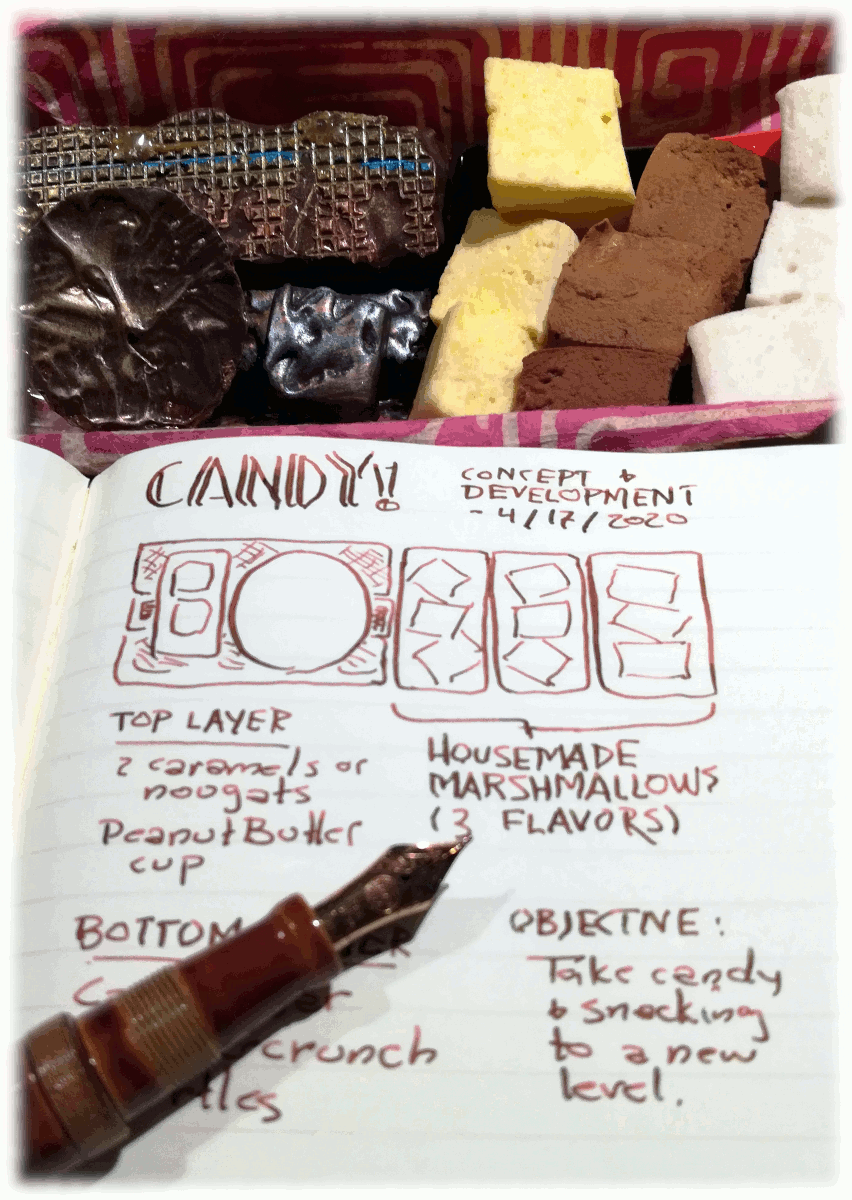 CANDY!
CONCEPT &
DEVELOPMENT
- 4/17/2020
TOP LAYER
2 caramels or
nougats
Peanut Butter
cup
HOUSEMADE
MARSHMALLOWS
(3 FLAVORS)
BOTTOM
crunch
OBJECTIVE:
Take candy
& snacking
to a new
level.